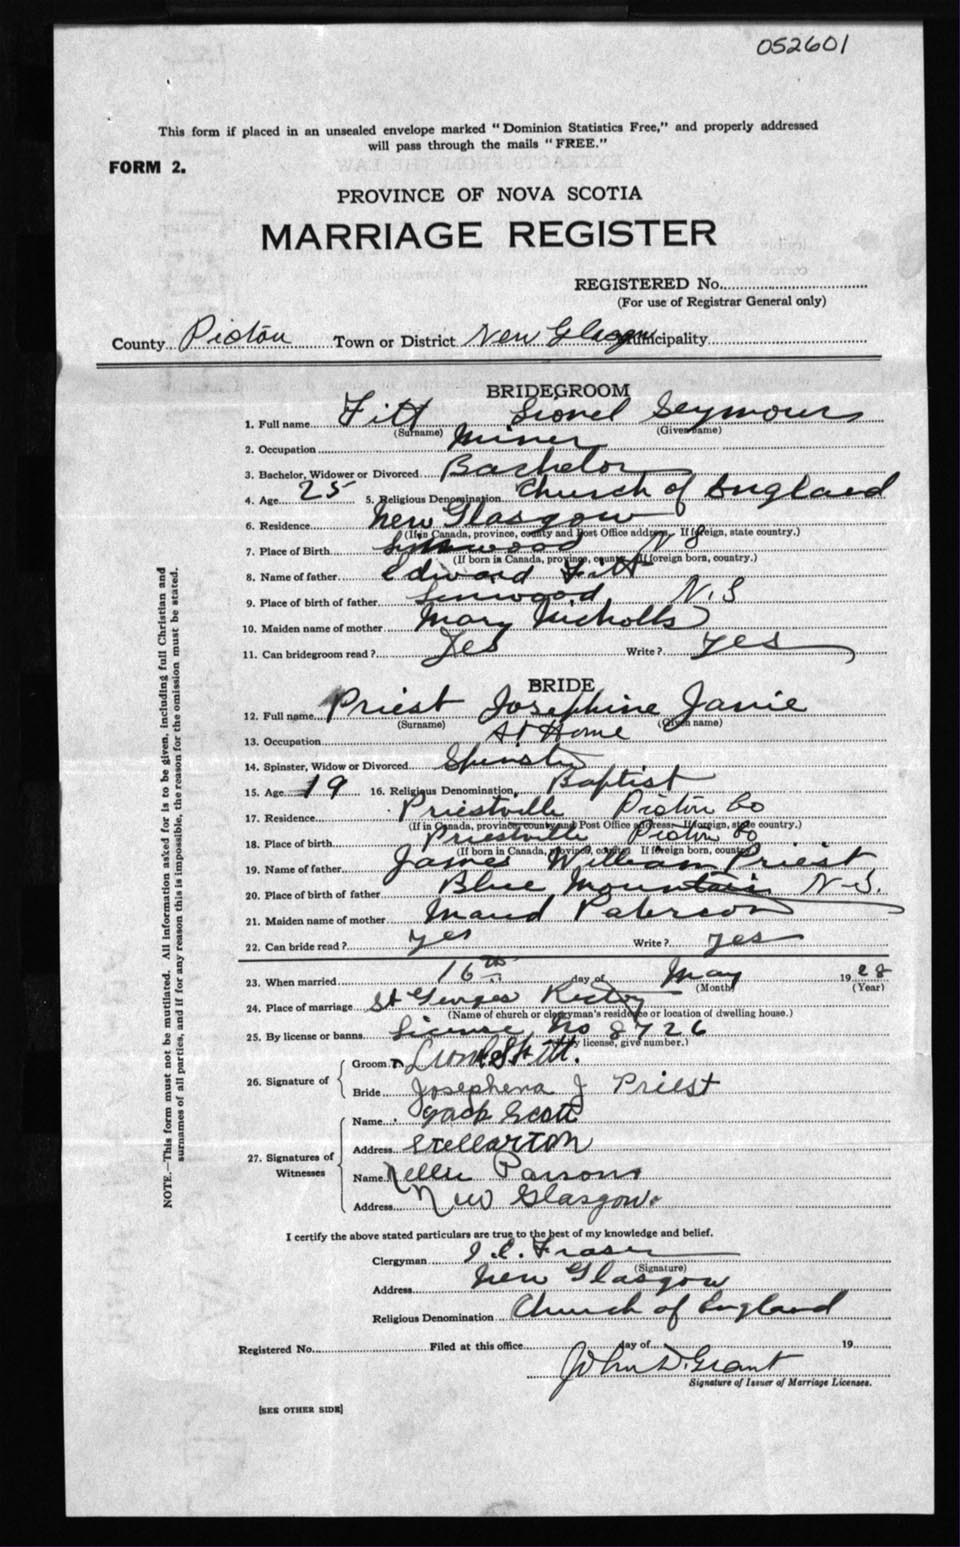 052601
This form if placed in an unsealed envelope marked "Dominion Statistics Free," and properly addressed
will pass through the mails "FREE."
FORM 2.
PROVINCE OF NOVA SCOTIA
MARRIAGE REGISTER
REGISTERED No.
(For use of Registrar General only)
County Pictou Town or District New Glasgow Municipality
BRIDEGROOM
1. Full name Fitt Lionel Seymour
(Surname) (Given name)
2. Occupation Miner
3. Bachelor, Widower or Divorced Bachelor
4. Age 25 5. Religious Denomination Church of England
6. Residence New Glasgow
(If in Canada, province, county and Post Office address. If foreign, state country.)
7. Place of Birth Linwood N S
(If born in Canada, province, county. If foreign born, country.)
8. Name of father Edward Fitt
9. Place of birth of father Linwood N.S
10. Maiden name of mother Mary Nicholls
11. Can bridegroom read? Yes Write? yes
BRIDE
12. Full name Priest Josephine Janie
(Surname) (Given name)
13. Occupation At Home
14. Spinster, Widow or Divorced Spinster
15. Age 19 16. Religious Denomination Baptist
17. Residence Priestville Pictou Co
(If in Canada, province, county and Post Office address. If foreign, state country.)
18. Place of birth Priestville Pictou Co
(If born in Canada, province, county. If foreign born, country.)
19. Name of father James William Priest
20. Place of birth of father Blue Mountain N-S.
21. Maiden name of mother Maud Paterson
22. Can bride read? yes Write? yes
23. When married 16th day of May 1928
(Month) (Year)
24. Place of marriage St Georges Rectory
(Name of church or clergyman's residence or location of dwelling house.)
25. By license or banns License No 8726
(By license, give number.)
26. Signature of
Groom Lionel S Fitt.
Bride Josephena J Priest
27. Signatures of Witnesses
Name Jack Scott
Address Stellarton
Name Nellie Parsons
Address New Glasgow.
I certify the above stated particulars are true to the best of my knowledge and belief.
Clergyman Fraser
(Signature)
Address New Glasgow
Religious Denomination Church of England
Registered No. Filed at this office day of 19
John D. Grant
Signature of Issuer of Marriage Licenses.
[SEE OTHER SIDE]
NOTE.—This form must not be mutilated. All information asked for is to be given, including full Christian and
surnames of all parties, and if for any reason this is impossible, the reason for the omission must be stated.